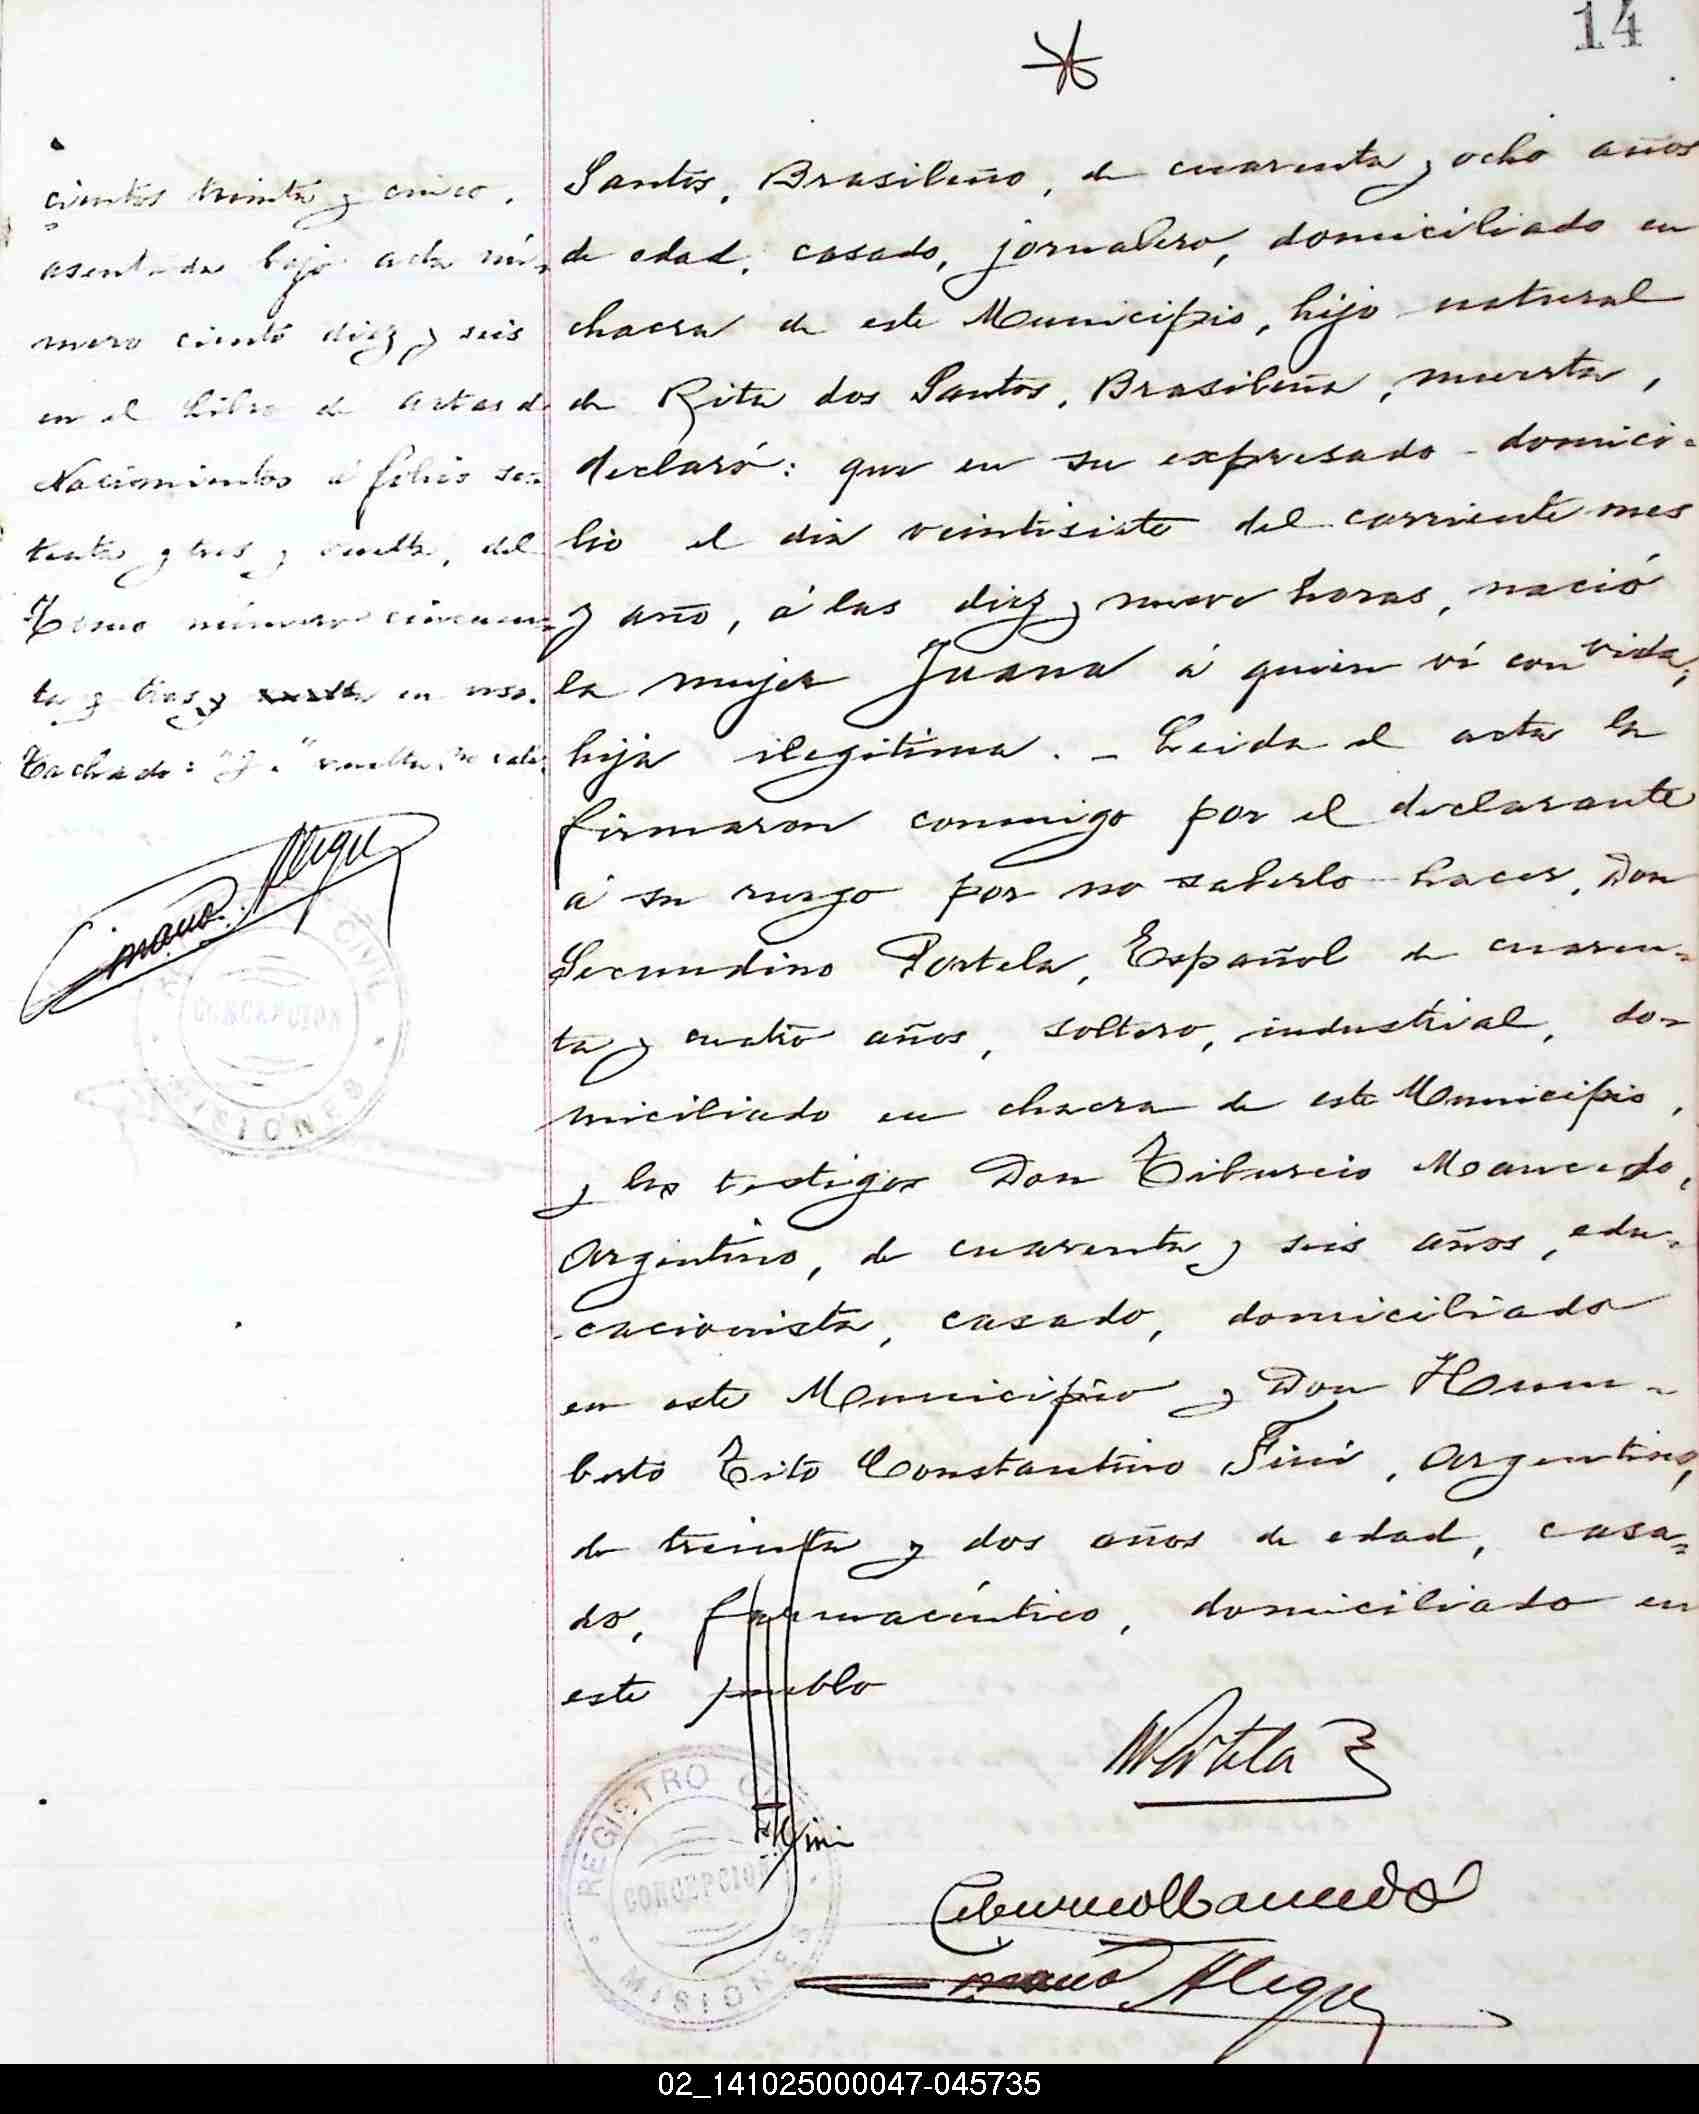 14
cientos treinta y cinco,
asentada bajo acta nú-
mero ciento diez y seis
en el Libro de actas d
Nacimientos á folios se-
tenta y tres y vuelta, del
Tomo número cincuen-
ta y tres y vuelta en uso.
Tachado: "y" vuelta, no vale.
REGISTRO CIVIL
CONCEPCION
MISIONES
Santos, Brasileño, de cuarenta y ocho años
de edad, casado, jornalero, domiciliado en
chacra de este Municipio, hijo natural
de Rita dos Santos, Brasileña, muerta,
declaró: que en su expresado domici-
lio el dia veintisiete del corriente mes
y año, á las diez y nueve horas, nació
la mujer Juana á quien ví con vida,
hija ilegitima. - Leida el acta la
firmaron conmigo por el declarante
á su ruego por no saberlo hacer, Don
Secundino Portela, Español de cuaren-
ta y cuatro años, soltero, industrial, do-
miciliado en chacra de este Municipio,
y los testigos Don Tiburcio Mancedo,
Argentino, de cuarenta y seis años, edu-
cacionista, casado, domiciliado
en este Municipio y Don Hum-
berto Tito Constantino Fini, Argentino,
de treinta y dos años de edad, casa-
do, farmacéutico, domiciliado en
este pueblo
Portela
Fini
Tiburcio Mancedo
REGISTRO CIVIL
CONCEPCION
MISIONES
02_141025000047-045735